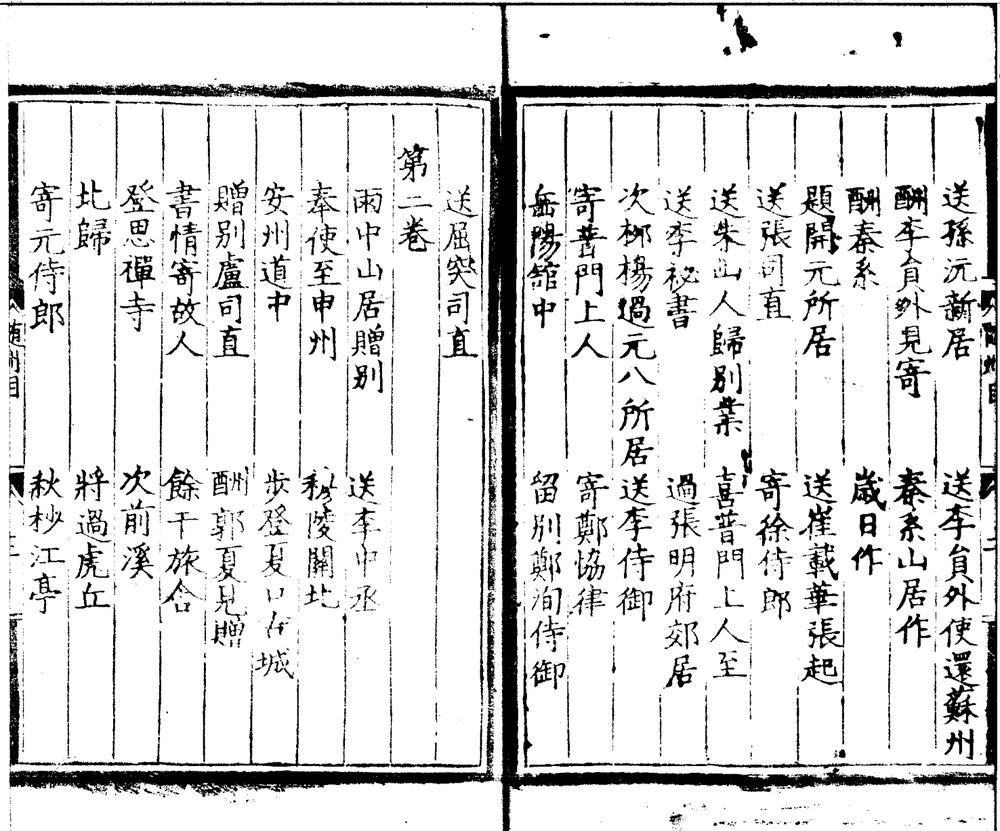 送孫沅新居　送李員外使還蘇州
酬李員外見寄　秦系山居作
酬秦系　歲日作
題開元所居　送崔載華張起
送張司直　寄徐侍郎
送朱山人歸別業　喜普門上人至
送李祕書　過張明府郊居
次柳楊過元八所居　送李侍御
寄普門上人　寄鄭協律
岳陽館中　留別鄭洵侍御
送屈突司直
第二卷
雨中山居贈別　送李中丞
奉使至申州　穆陵關北
安州道中　步登夏口古城
贈別盧司直　酬郭夏見贈
書情寄故人　餘干旅舍
登思禪寺　次前溪
北歸　將過虎丘
寄元侍郎　秋杪江亭
隨州目